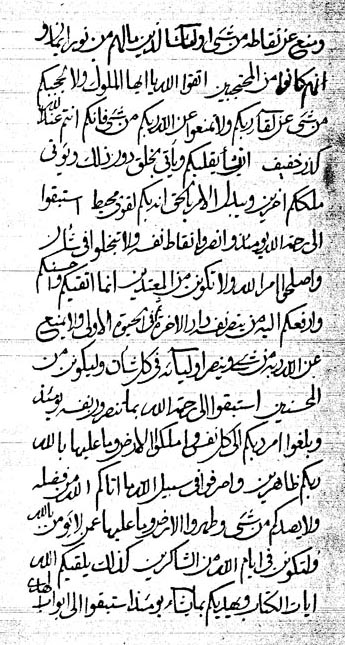 ويمنع عن لقاطه من شيء اولئك الذين مالهم من نور انهار و
انهم كانوا من المحتجبين اتقوا الله يا ايها الملوك ولا تحجبكم
من شيء عن لقاء ربكم ولا تمنعوا عن الله ربكم من شيء فانكم انتم عند الله
كل خفيف ان يشأ يقلبكم ويأتي بخلق دون ذلك ويؤتي
ملككم اخرين ويبدل الامر بالحق ان ربكم لقوي محيط استبقوا
الى رحمة الله يومئذ وانصروا لقاط نفسه ولا تبخلوا في شأن
واصلحوا امر الله ولا تكونن من المعتدين انما اتقيكم
وارفعكم اليه من ينصر في دار الاخرة في الحيوة الاولى ولا يمنع
عن الله ربه من شيء وينصر اوليائه في كل شأن وليكونن من
المحسنين استبقوا الى رحمة الله بما تنصرون نفسه يومئذ
وبلغوا امر ربكم الى كل نفس واملكوا الارض وما عليها بالله
ربكم ظاهرين واصرفوا في سبيل الله ما اتاكم الله من فضله
ولا يصدكم من شيء وطهروا الارض وما عليها عن لا يؤمن بالله
ولتكونن في ايام الله من الشاكرين كذلك يلقيكم الله
ايات الكتاب ويهديكم بما يشاء يومئذ استبقوا الى ابواب الهداية